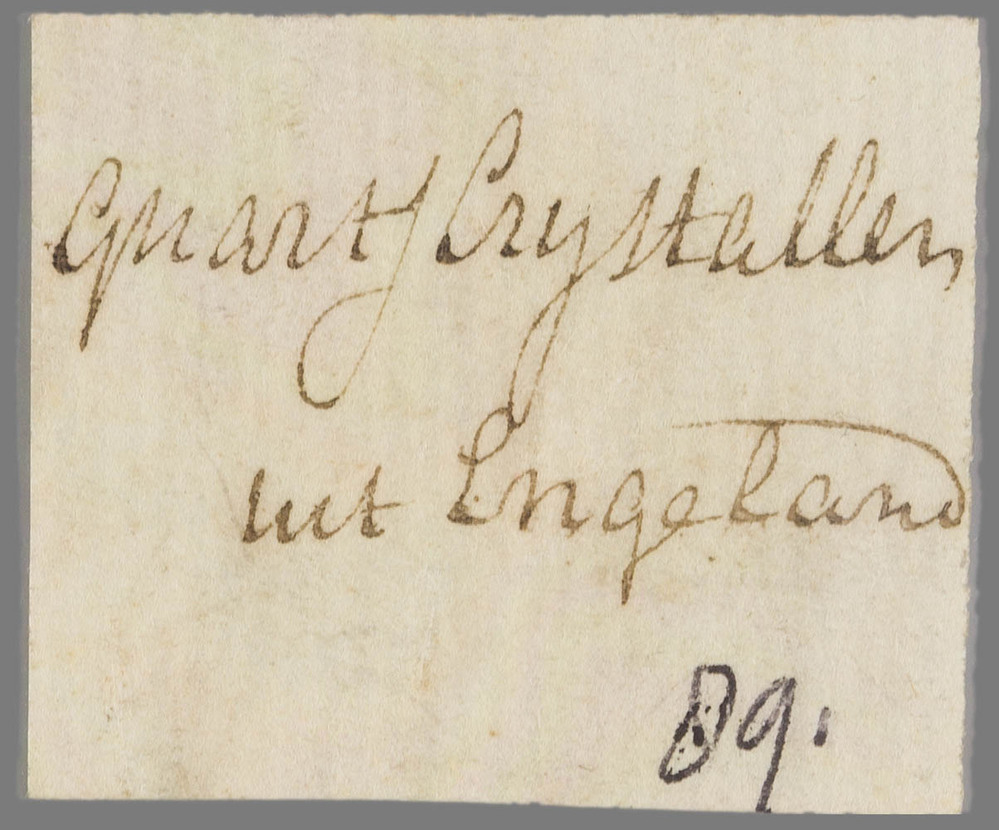 Quarts Crystallen
uit Engeland
89.